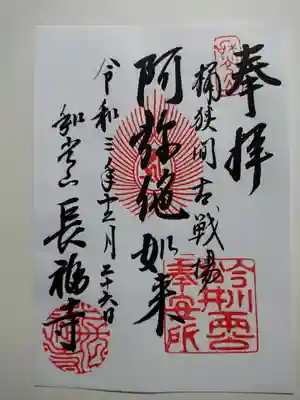 奉拝
桶狭間古戦場
阿弥陀如来
令和三年十二月二十六日
和光山 長福寺
今川
井
奉安所